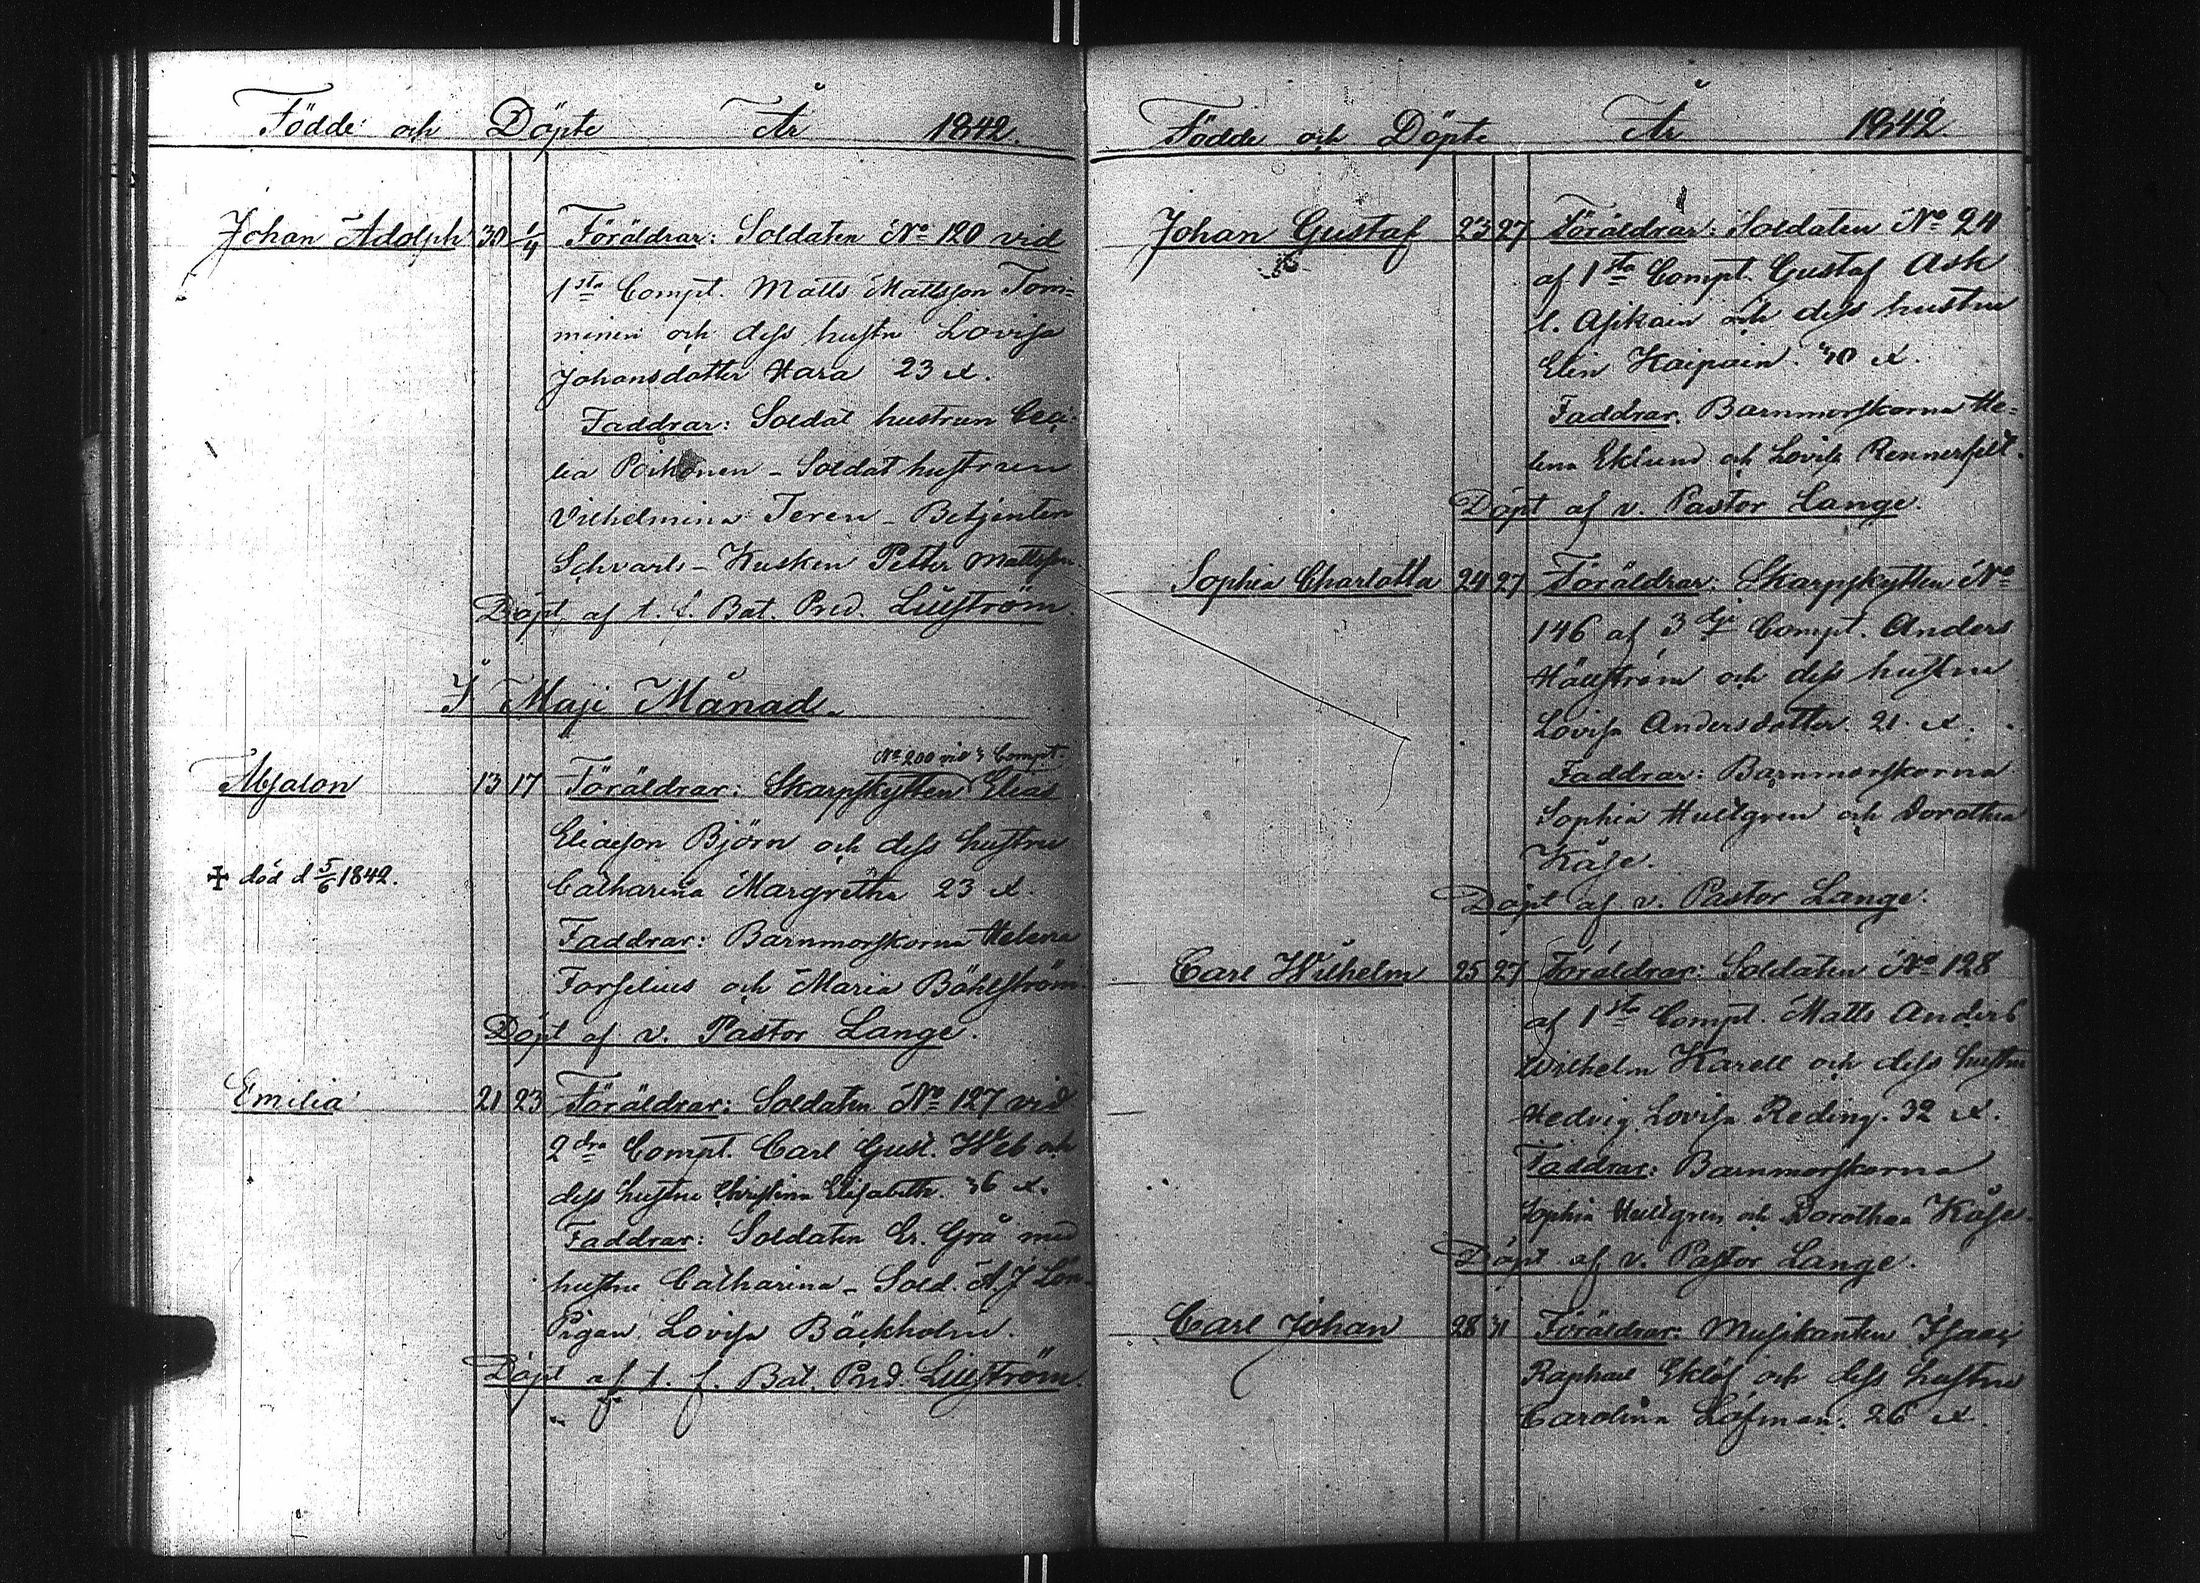 Födde och Döpte År 1842.
Johan Adolph 30 1/4 Föräldrar: Soldaten No 120 vid
1sta Compt. Matts Mattsson Tom=
minen och dess hustru Lovisa
Johansdotter Hara 23 år.
Faddrar: Soldat hustrun Ceci=
lia Poikonen – Soldat hustrun
Vilhelmina Teren – Betjenten
Schvarts – Kusken Petter Mattsson.
Döpt af t. f. Bat. Pred. Liljström.
I Maji Månad.
No 200 vid 3 Compt.
Absalon 13 17 Föräldrar: Skarpskytten Elias
Eliasson Björn och dess hustru
✠ död d 5/6 1842.
Catharina Margretha 23 år.
Faddrar: Barnmorskorna Helena
Forselius och Maria Böhlström.
Döpt af v. Pastor Lange.
Emilia 21 23 Föräldrar: Soldaten No 127 vid
2dra Compt. Carl Gust. Web och
dess hustru Christina Elisabeth. 36 år.
Faddrar: Soldaten Er. Grå med
hustru Catharina – Sold. A J Lön–
Pigan Lovisa Bäckholm.
Döpt af t. f. Bat. Pred. Liljström.
Födde och Döpte År 1842
Johan Gustaf 23 27 Föräldrar: Soldaten No 24
af 1sta Compt. Gustaf Ask
l. Asikain och dess hustru
Elin Kaipain. 30 år.
Faddrar. Barnmorskorna He=
lena Eklund och Lovisa Rennerfelt.
Döpt af v. Pastor Lange.
Sophia Charlotta 24 27 Föräldrar: Skarpskytten No
146 af 3dje Compt. Anders
Hällström och dess hustru
Lovisa Andersdotter. 21. år.
Faddrar: Barnmorskorna
Sophia Hultgren och Dorothea
Kåse.
Döpt af v. Pastor Lange.
Carl Wilhelm 25 27 Föräldrar: Soldaten No 128
af 1sta Compt. Matts Anders
Wilhelm Karell och dess hustru
Hedvig Lovisa Reding. 32 år.
Faddrar: Barnmorskorna
Sophia Hultgren och Dorothea Kåse.
Döpt af v. Pastor Lange.
Carl Johan 28 31 Föräldrar: Musikanten Isaac
Raphael Eklöf och dess hustru
Carolina Löfman. 26 år.